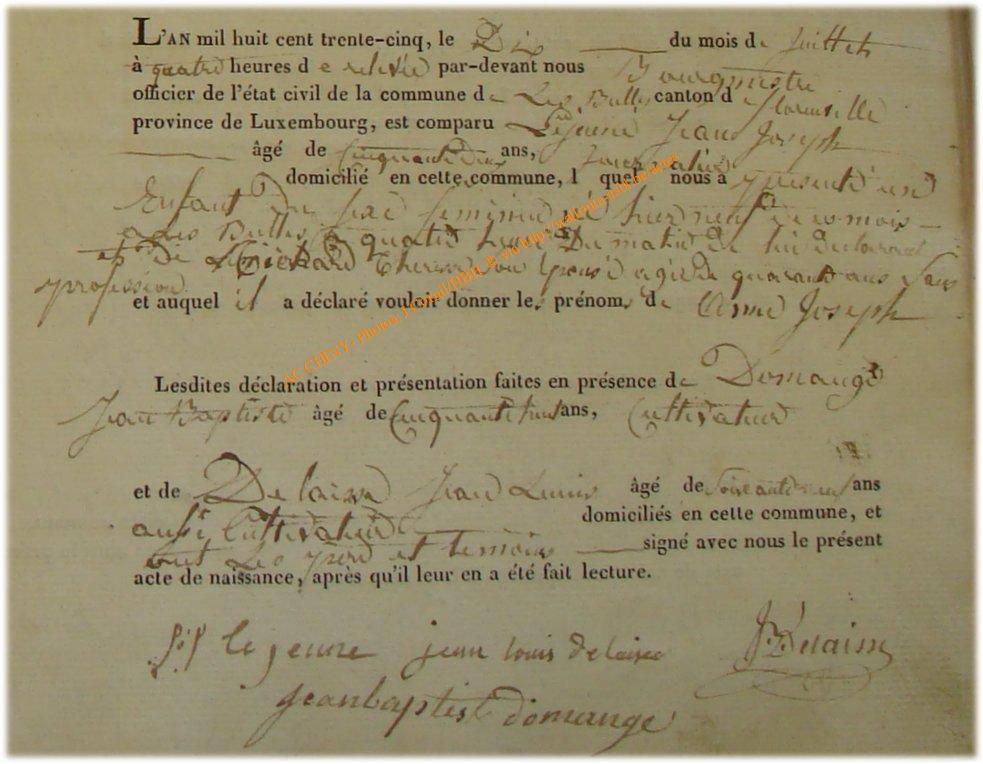 L'AN mil huit cent trente-cinq, le Dix du mois de juillet
à quatre heures de relevée par-devant nous Bourgmestre
officier de l'état civil de la commune de Les Bulles canton de florenville
province de Luxembourg, est comparu Lejeune Jean Joseph
âgé de Cinquante deux ans,
domicilié en cette commune, lequel nous a présenté une
Enfant du sexe feminin né hier neuf de ce mois
a Les Bulles a quatre heures Du matin de lui declarant
et De Therese son Epouse agée de quarante ans Sans
profession
et auquel il a déclaré vouloir donner les prénoms de Anne Joseph
Lesdites déclaration et présentation faites en présence de Domange
Jean Baptiste âgé de Cinquante huit ans, Cultivateur
et de Delaisse Jean Louis âgé de Soixante neuf ans
aussi Cultivateur domiciliés en cette commune, et
ont Les pere et temoins signé avec nous le présent
acte de naissance, après qu'il leur en a été fait lecture.
le jeune jean louis delaisse
jeanbaptist domange